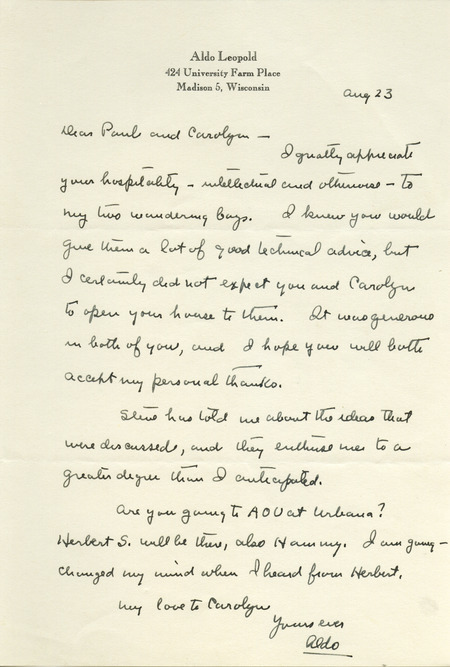 Aldo Leopold
424 University Farm Place
Madison 5, Wisconsin
Aug 23
Dear Paul and Carolyn —
I greatly appreciate
your hospitality – intellectual and otherwise – to
my two wandering boys. I knew you would
give them a lot of good technical advice, but
I certainly did not expect you and Carolyn
to open your house to them. It was generous
in both of you, and I hope you will both
accept my personal thanks.
has told me about the ideas that
were discussed, and they enthuse me to a
greater degree than I anticipated.
Are you going to AOU at Urbana?
Herbert S. will be there, also Hammy. I am going –
changed my mind when I heard from Herbert.
My love to Carolyn
Yours ever
Aldo